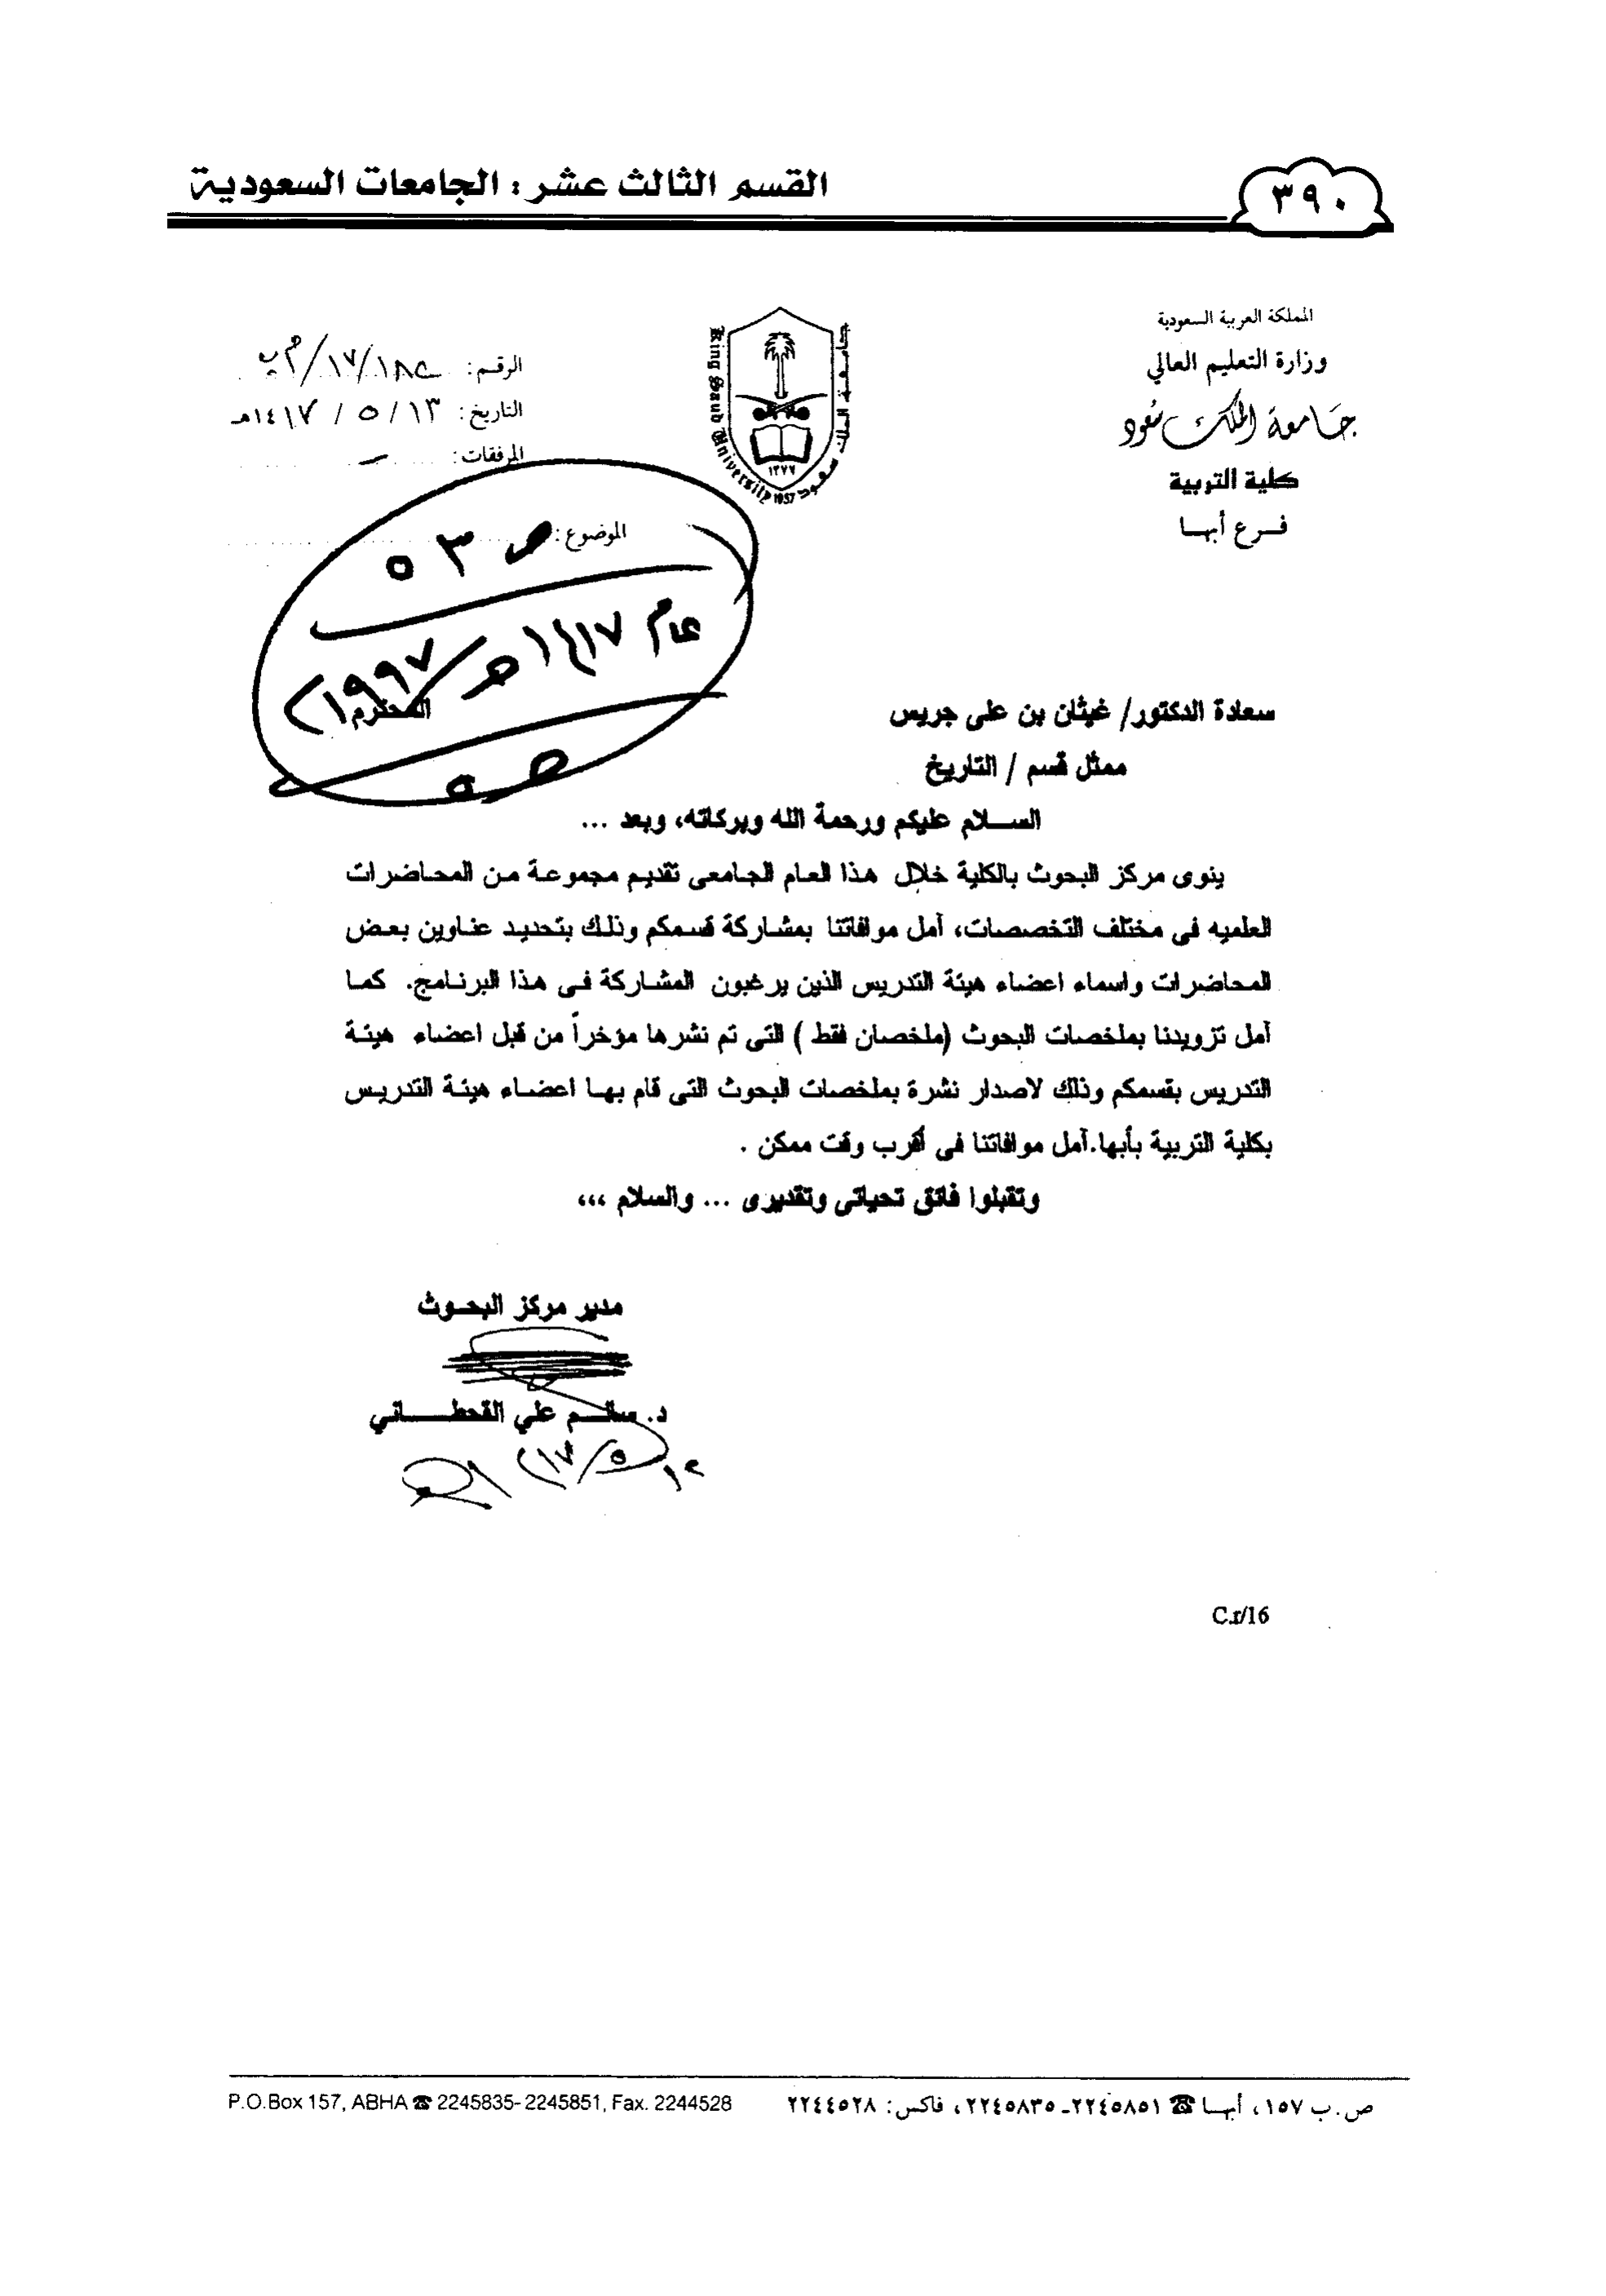 القسم الثالث عشر : الجامعات السعودية
٣٩٠
المملكة العربية السعودية
وزارة التعليم العالي
جامعة الملك سعود
كلية التربية
فرع أبها
جامعة الملك سعود
King Saud University
١٣٧٧
1957
الرقم:
التاريخ: ١٣ / ٥ / ١٤١٧هـ
المرفقات: -
الموضوع:
ص ٣ ٥
عام ١٤١٧هـ / ١٩٩٧م
سعادة الدكتور/ غيثان بن على جريس المحترم
ممثل قسم / التاريخ
السلام عليكم ورحمة الله وبركاته، وبعد ...
ينوى مركز البحوث بالكلية خلال هذا العام الجامعى تقديم مجموعة من المحاضرات
العلميه فى مختلف التخصصات، آمل موافاتنا بمشاركة قسمكم وذلك بتحديد عناوين بعض
المحاضرات واسماء اعضاء هيئة التدريس الذين يرغبون المشاركة فى هذا البرنامج. كما
آمل تزويدنا بملخصات البحوث (ملخصان فقط ) التى تم نشرها مؤخراً من قبل اعضاء هيئة
التدريس بقسمكم وذلك لاصدار نشرة بملخصات البحوث التى قام بها اعضاء هيئة التدريس
بكلية التربية بأبها.آمل موافاتنا فى أقرب وقت ممكن .
وتقبلوا فائق تحياتى وتقديرى ... والسلام ،،،
مدير مركز البحوث
د. سالم علي القحطاني
C.r/16
ص.ب ١٥٧، أبها ☎ ٢٢٤٥٨٥١-٢٢٤٥٨٣٥، فاكس: ٢٢٤٤٥٢٨
P.O.Box 157, ABHA ☎ 2245835-2245851, Fax. 2244528